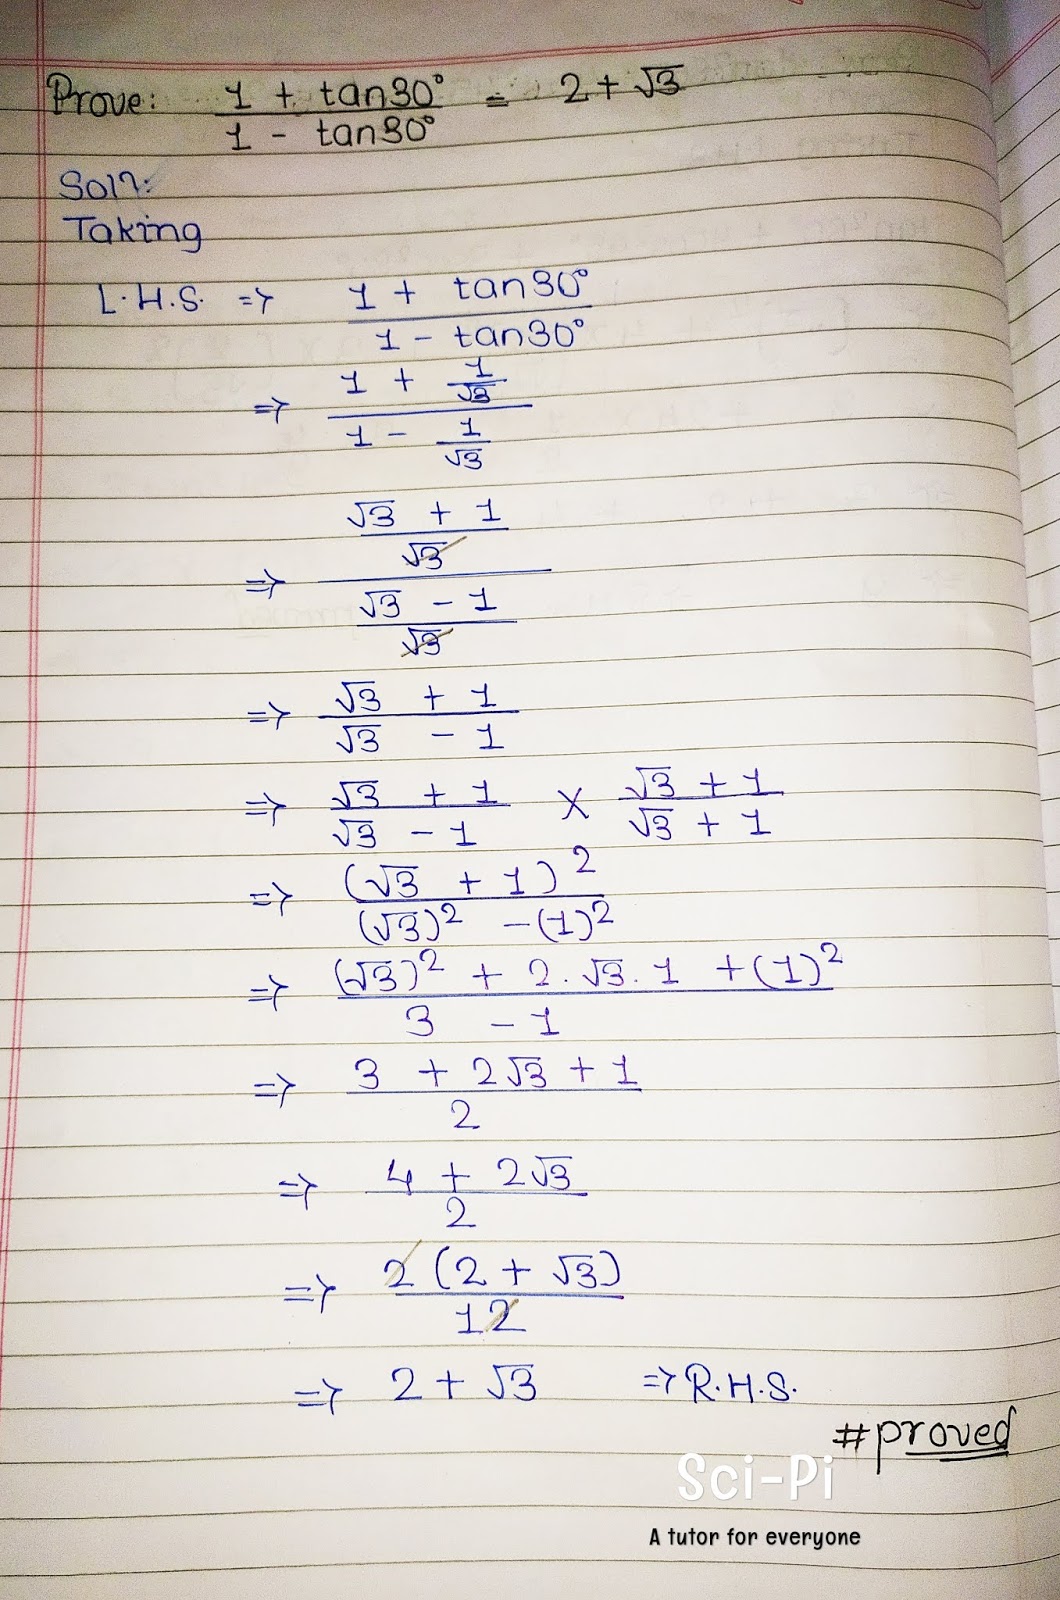 Prove: 1 + tan30° / 1 - tan30° = 2 + √3
Solⁿ:
Taking
L.H.S. => 1 + tan30° / 1 - tan30°
=> 1 + 1/√3 / 1 - 1/√3
=> √3 + 1 / √3 / √3 - 1 / √3
=> √3 + 1 / √3 - 1
=> √3 + 1 / √3 - 1 × √3 + 1 / √3 + 1
=> (√3 + 1)² / (√3)² - (1)²
=> (√3)² + 2.√3.1 + (1)² / 3 - 1
=> 3 + 2√3 + 1 / 2
=> 4 + 2√3 / 2
=> 2 (2 + √3) / 12
=> 2 + √3 => R.H.S.
#proved
Sci-Pi
A tutor for everyone